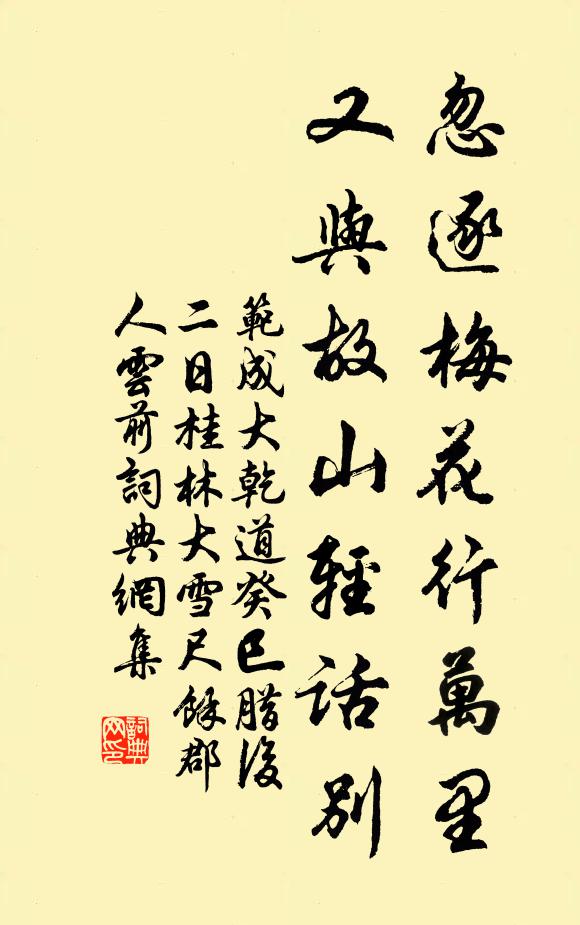 忽逐梅花行萬里
又與故山輕話別
範成大乾道癸巳腊後
二日桂林大雪尺餘郡
人雲前詞典網集
詞典
网印